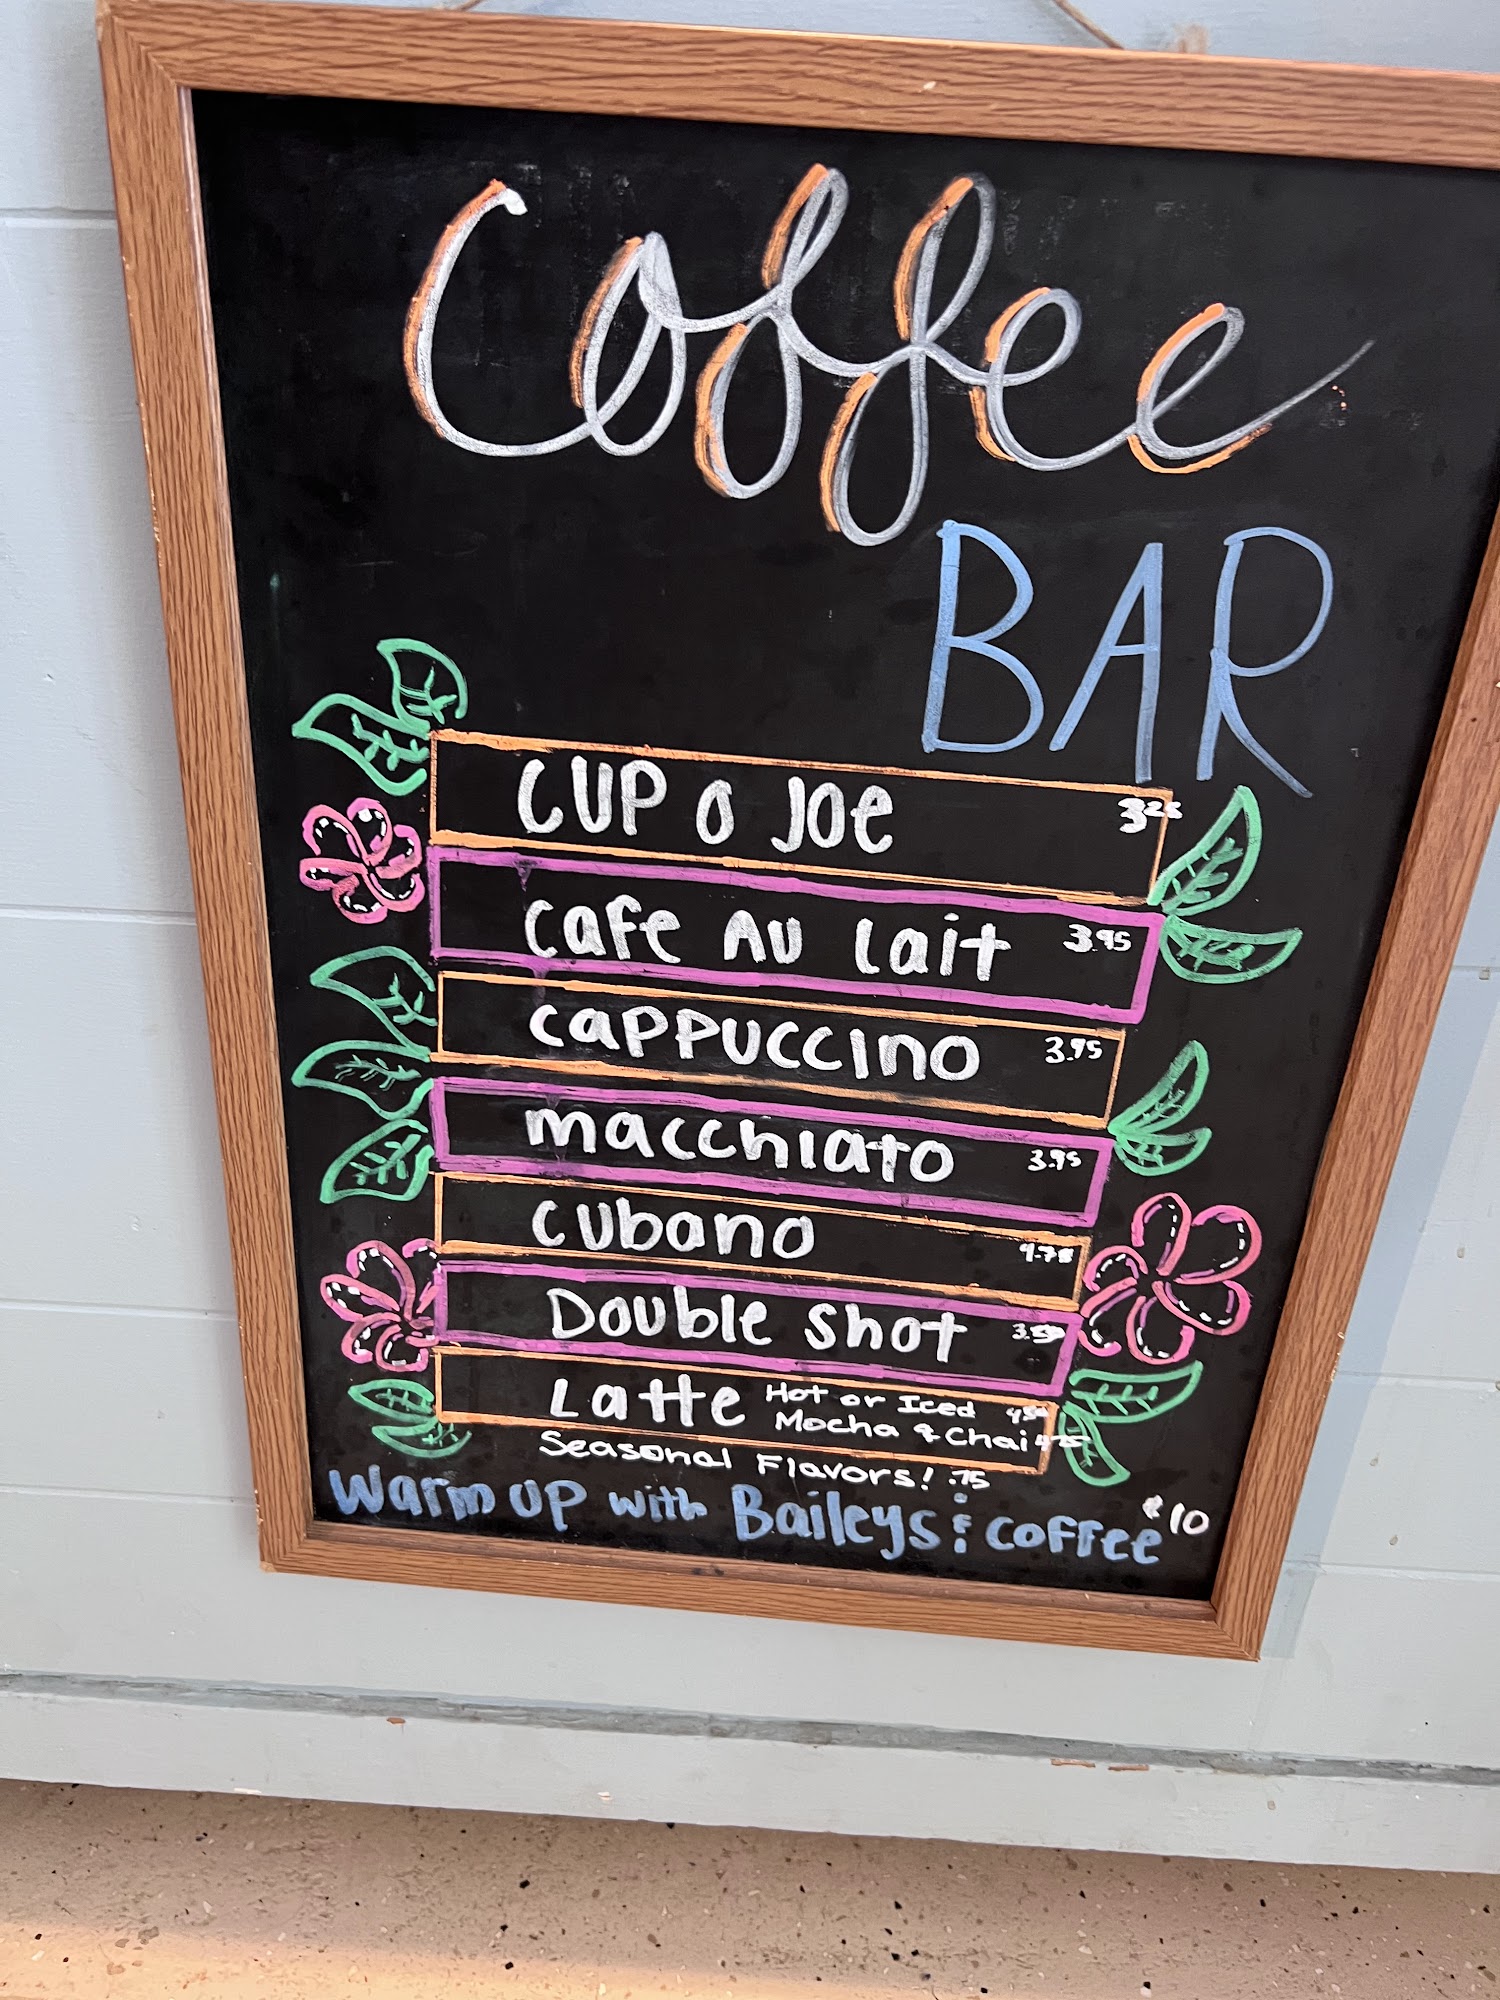 Coffee
BAR
CUP O JOE 3.25
Cafe AU Lait 3.95
Cappuccino 3.95
macchiato 3.95
Cubano 4.75
Double Shot 3.50
Latte Hot or Iced 4.50
Mocha & Chai 4.75
Seasonal Flavors! .75
Warm UP with Baileys & Coffee $10